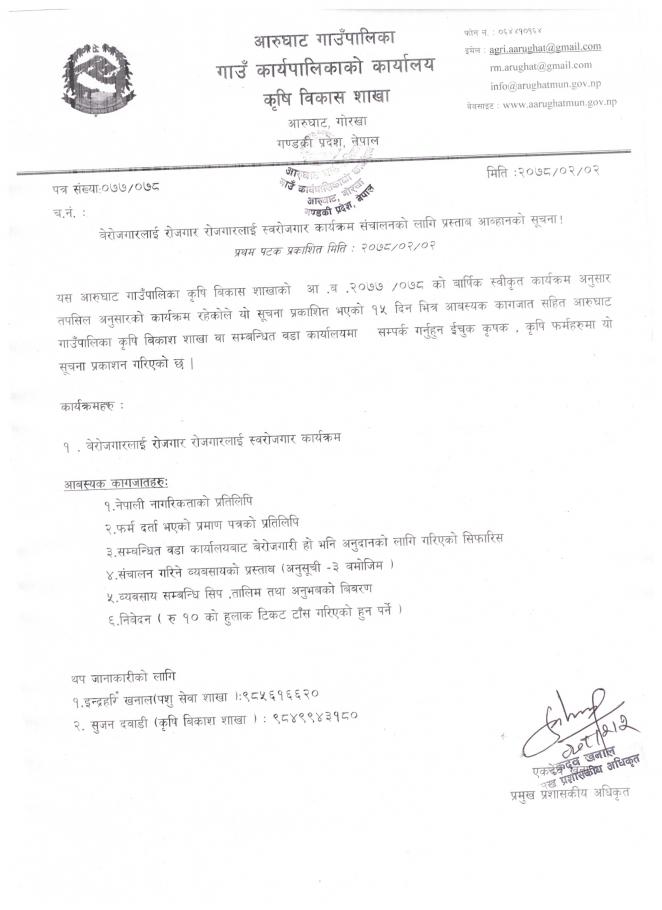 आरुघाट गाउँपालिका
गाउँ कार्यपालिकाको कार्यालय
कृषि विकास शाखा
आरुघाट, गोरखा
गण्डकी प्रदेश, नेपाल
फोन नं. : ०६४४१०१६४
इमेल : agri.aarughat@gmail.com
rm.arughat@gmail.com
info@arughatmun.gov.np
वेवसाइट : www.aarughatmun.gov.np
पत्र संख्या:०७७/०७८
मिति :२०७८/०२/०२
च.नं. :
गाउँ कार्यपालिकाको
आरुघाट, गोरखा
गण्डकी प्रदेश, नेपाल
बेरोजगारलाई रोजगार रोजगारलाई स्वरोजगार कार्यक्रम संचालनको लागि प्रस्ताव आव्हानको सूचना!
प्रथम पटक प्रकाशित मिति : २०७८/०२/०२
यस आरुघाट गाउँपालिका कृषि बिकास शाखाको आ .ब .२०७७ /०७८ को बार्षिक स्वीकृत कार्यक्रम अनुसार
तपसिल अनुसारको कार्यक्रम रहेकोले यो सूचना प्रकाशित भएको १५ दिन भित्र आबस्यक कागजात सहित आरुघाट
गाउँपालिका कृषि बिकाश शाखा वा सम्बन्धित वडा कार्यालयमा सम्पर्क गर्नुहुन ईचुक कृषक , कृषि फर्महरुमा यो
सूचना प्रकाशन गरिएको छ |
कार्यक्रमहरु :
१ . बेरोजगारलाई रोजगार रोजगारलाई स्वरोजगार कार्यक्रम
आबस्यक कागजातहरु:
१.नेपाली नागरिकताको प्रतिलिपि
२.फर्म दर्ता भएको प्रमाण पत्रको प्रतिलिपि
३.सम्बन्धित वडा कार्यालयबाट बेरोजगारी हो भनि अनुदानको लागि गरिएको सिफारिस
४.संचालन गरिने व्यबसायको प्रस्ताव (अनुसूची -३ वमोजिम )
५.व्यबसाय सम्बन्धि सिप ,तालिम तथा अनुभबको बिबरण
६.निवेदन ( रु १० को हुलाक टिकट टाँस गरिएको हुन पर्ने )
थप जानाकारीको लागि
१.इन्द्रहरि खनाल(पशु सेवा शाखा ):९८५६१६६२०
२. सुजन दवाडी (कृषि बिकाश शाखा ) : ९८४९९४३१८०
खनाल
प्रशासकीय अधिकृत
प्रमुख प्रशासकीय अधिकृत